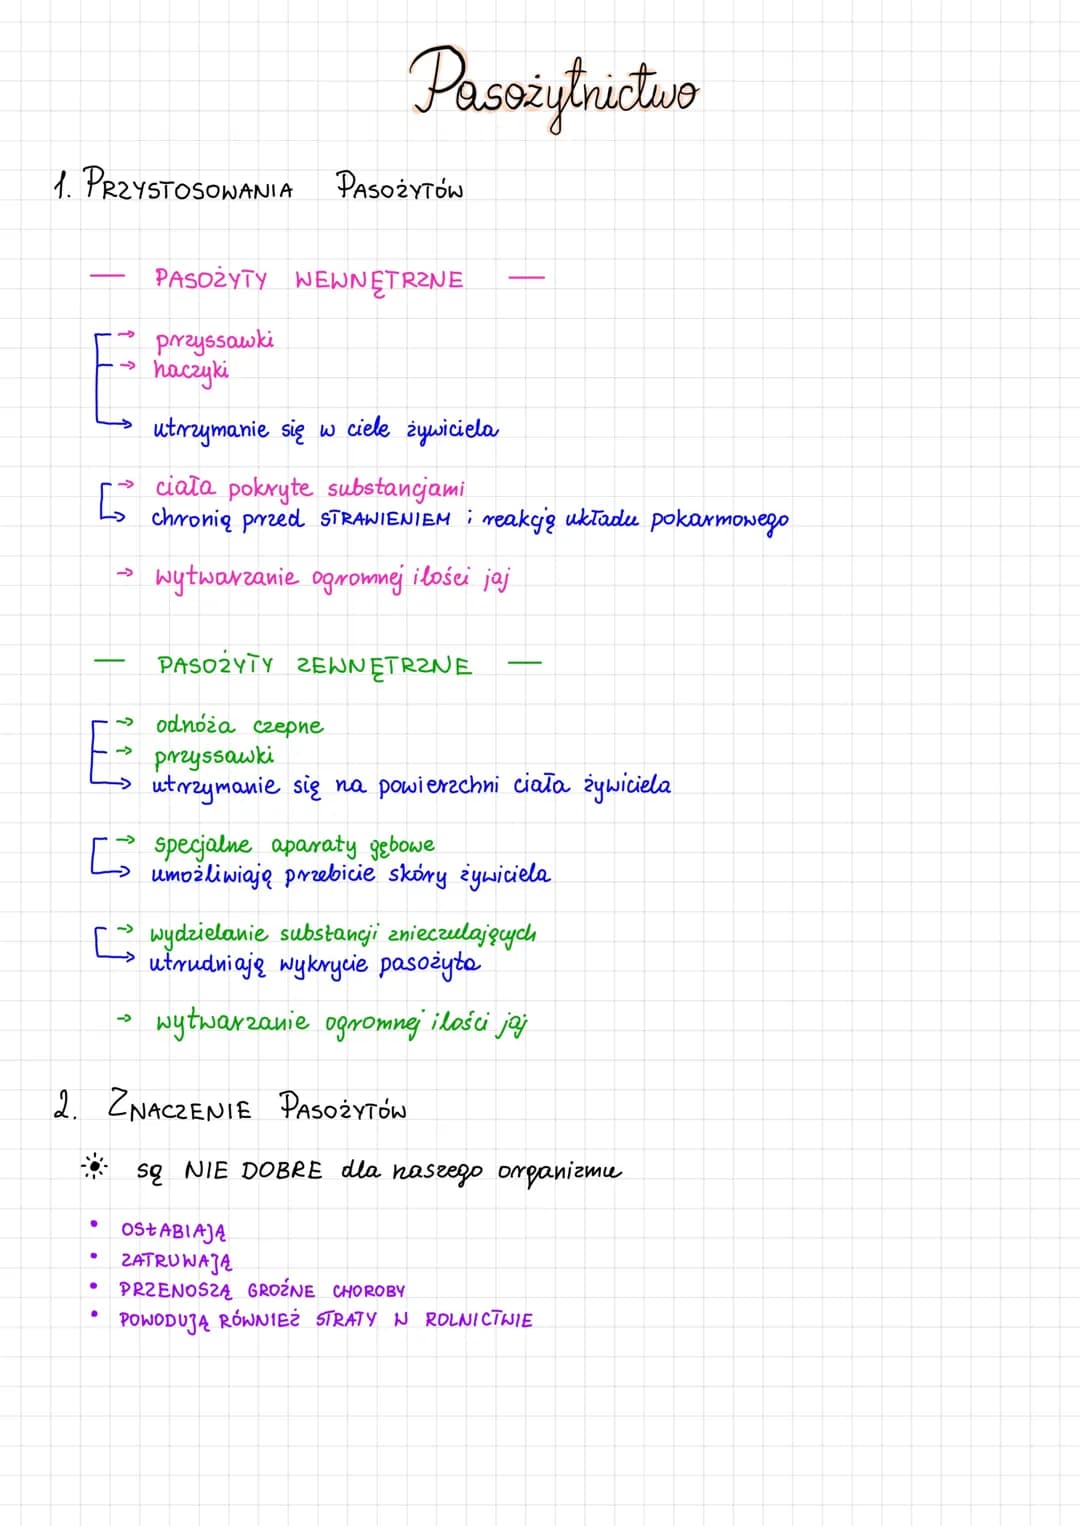 Pasożytnictwo
1. PRZYSTOSOWANIA PASOŻYTÓW
— PASOŻYTY WEWNĘTRZNE —
→ przyssawki
→ haczyki
→ utrzymanie się w ciele żywiciela
→ ciała pokryte substancjami
→ chronią przed STRAWIENIEM i reakcją układu pokarmowego
→ wytwarzanie ogromnej ilości jaj
— PASOŻYTY ZEWNĘTRZNE —
→ odnóża czepne
→ przyssawki
→ utrzymanie się na powierzchni ciała żywiciela
→ specjalne aparaty gębowe
→ umożliwiają przebicie skóry żywiciela
→ wydzielanie substancji znieczulających
→ utrudniają wykrycie pasożyta
→ wytwarzanie ogromnej ilości jaj
2. ZNACZENIE PASOŻYTÓW
są NIE DOBRE dla naszego organizmu
• OSŁABIAJĄ
• ZATRUWAJĄ
• PRZENOSZĄ GROŹNE CHOROBY
• POWODUJĄ RÓWNIEŻ STRATY W ROLNICTWIE